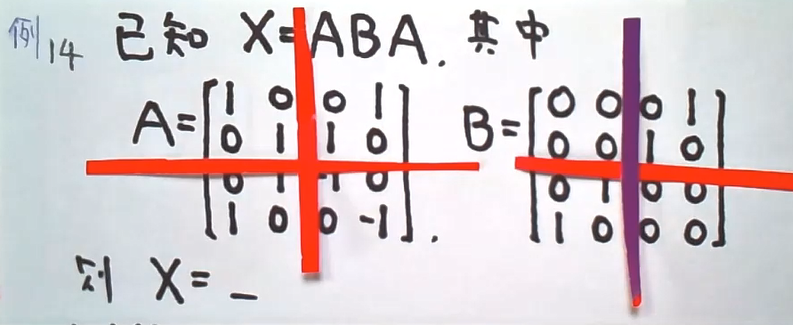 例14 已知 X=ABA. 其中
A=[1 0 0 1
0 1 1 0
0 1 -1 0
1 0 0 -1].
B=[0 0 0 1
0 0 1 0
0 1 0 0
1 0 0 0]
则 X= _